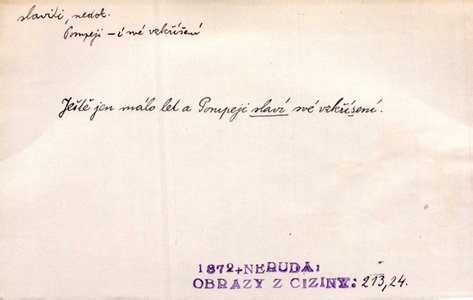 slaviti, nedok.
Pompeji – í své vzkříšení
Ještě jen málo let a Pompeji slaví své vzkříšení.
1872, NERUDA:
OBRAZY Z CIZINY: 213,24.